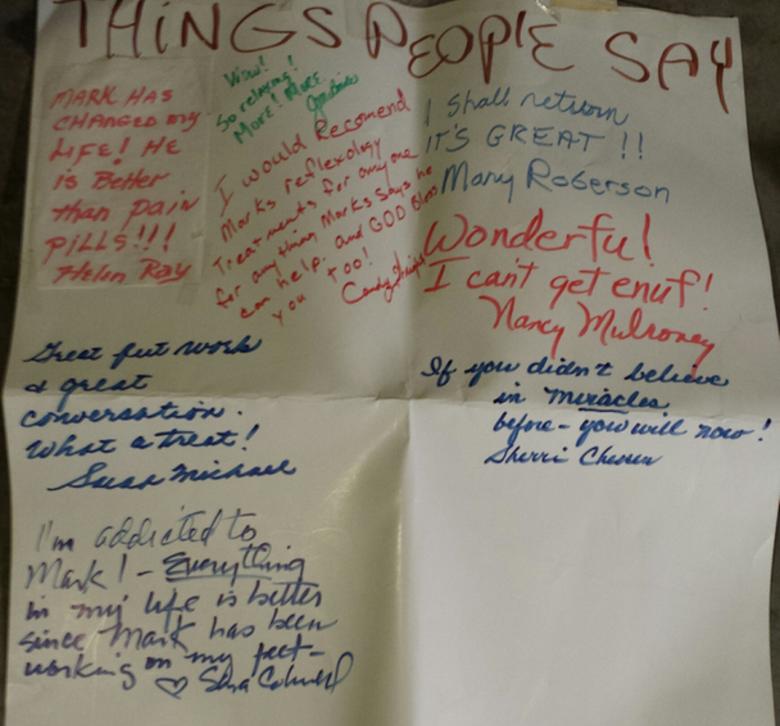 THINGS PEOPLE SAY
MARK HAS
CHANGED my
LIFE! HE
is Better
than pain
PILLS!!!
Helen Ray
Wow!
So relaxing!
More! More
I would Recomend
Marks reflexology
Treatments for anyone
for anything Marks Says he
can help. and GOD Bless
you too!
I shall return
IT'S GREAT !!
Mary Roberson
Wonderful!
I can't get enuf!
Nancy Mulroney
Great feet work
& great
conversation.
What a treat!
Michael
If you didn't believe
in miracles
before - you will now!
Sherri
I'm addicted to
Mark! - Everything
in my life is better
since Mark has been
working on my feet -